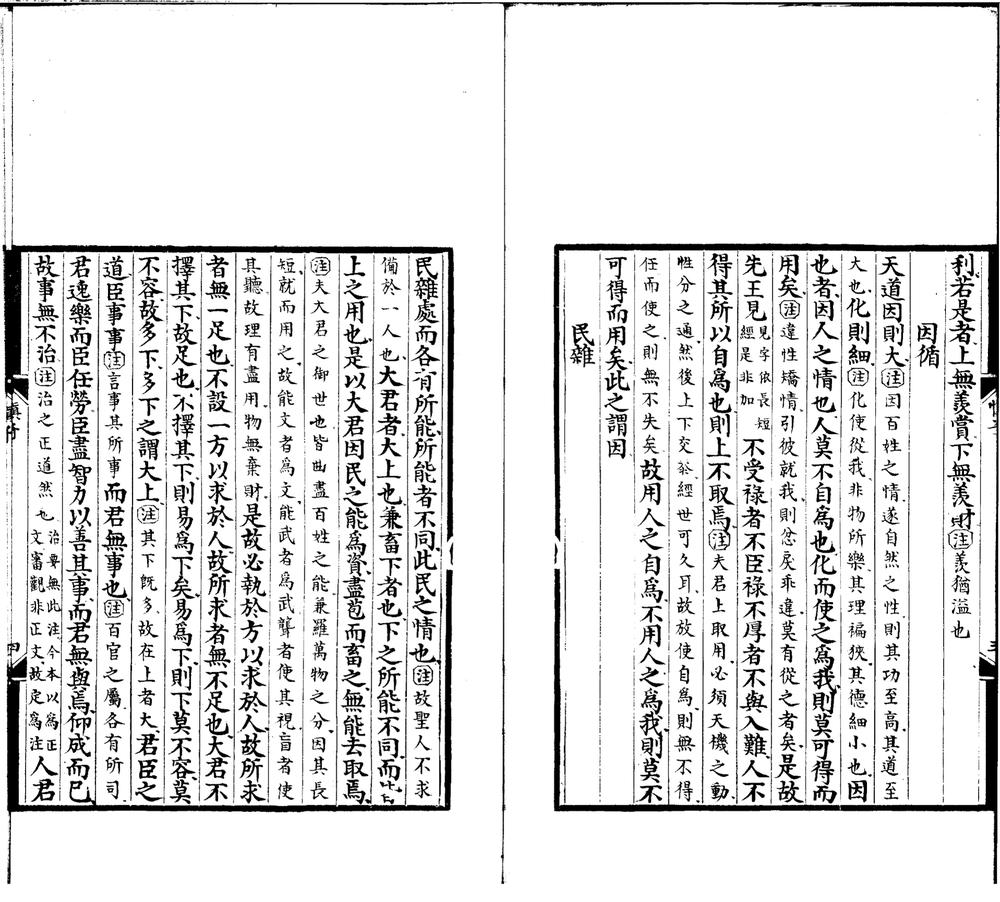 利若是者上無羨賞下無羨財注羨猶溢也
因循
天道因則大注因百姓之情遂自然之性則其功至高其道至
大也化則細注化使從我非物所樂其理褊狹其德細小也因
也者因人之情也人莫不自爲也化而使之爲我則莫可得而
用矣注違性矯情引彼就我則忿戾乖違莫有從之者矣是故
先王見見字依長短經是非加不受祿者不臣祿不厚者不與入難人不
得其所以自爲也則上不取焉注夫君上取用必須天機之動
性分之通然後上下交泰經世可久耳故放使自爲則無不得
任而使之則無不失矣故用人之自爲不用人之爲我則莫不
可得而用矣此之謂因
民雜
民雜處而各有所能所能者不同此民之情也注故聖人不求
備於一人也大君者大上也兼畜下者也下之所能不同而皆
上之用也是以大君因民之能爲資盡苞而畜之無能去取焉
注夫大君之御世也皆曲盡百姓之能兼羅萬物之分因其長
短就而用之故能文者爲文能武者爲武聾者使其視盲者使
其聽故理有盡用物無棄財是故必執於方以求於人故所求
者無一足也不設一方以求於人故所求者無不足也大君不
擇其下故足也不擇其下則易爲下矣易爲下則下莫不容莫
不容故多下多下之謂大上注其下旣多故在上者大君臣之
道臣事事注言事其所事而君無事也注百官之屬各有所司
君逸樂而臣任勞臣盡智力以善其事而君無與焉仰成而已
故事無不治注治之正道然也治要無此注今本以爲正文審觀非正文故定爲注人君